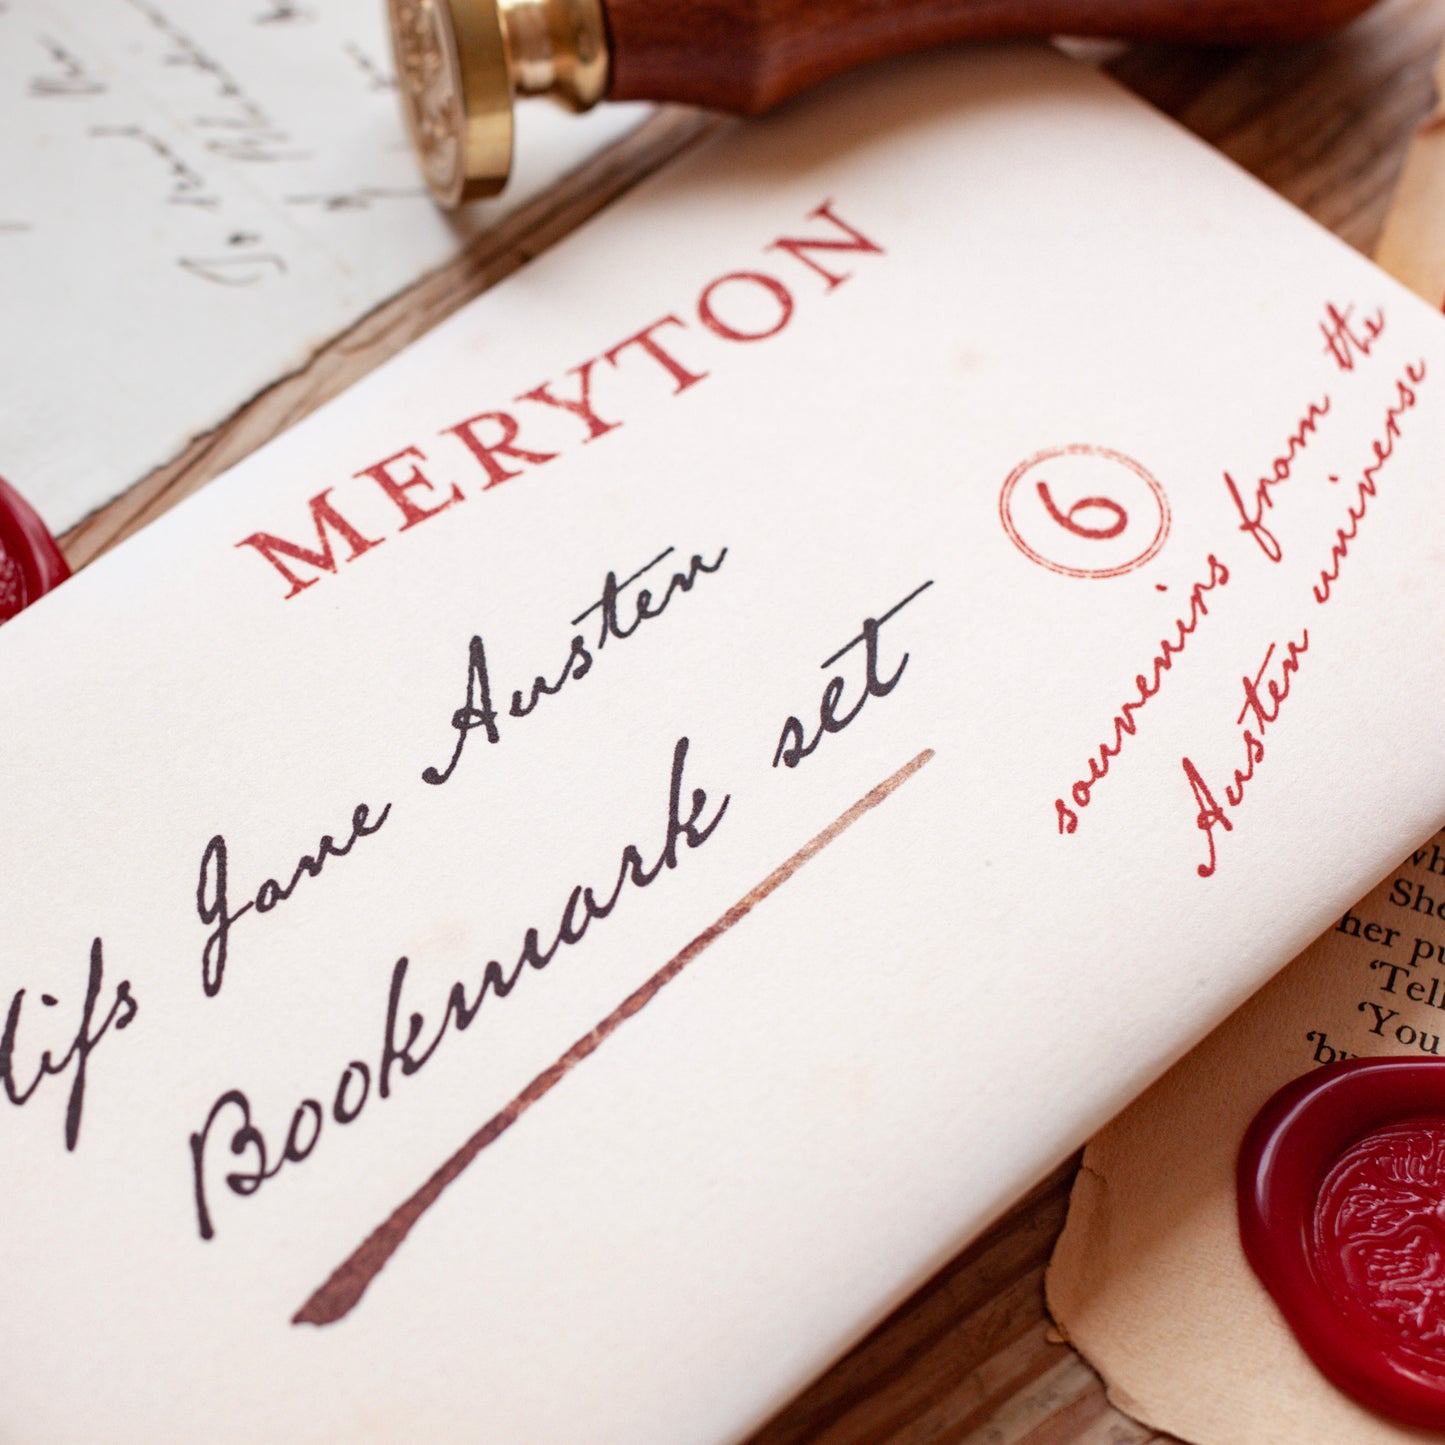 MERYTON
Miſs Jane Austen
Bookmark set
6
souvenirs from the
Austen universe
She
her
‘Tell
‘You